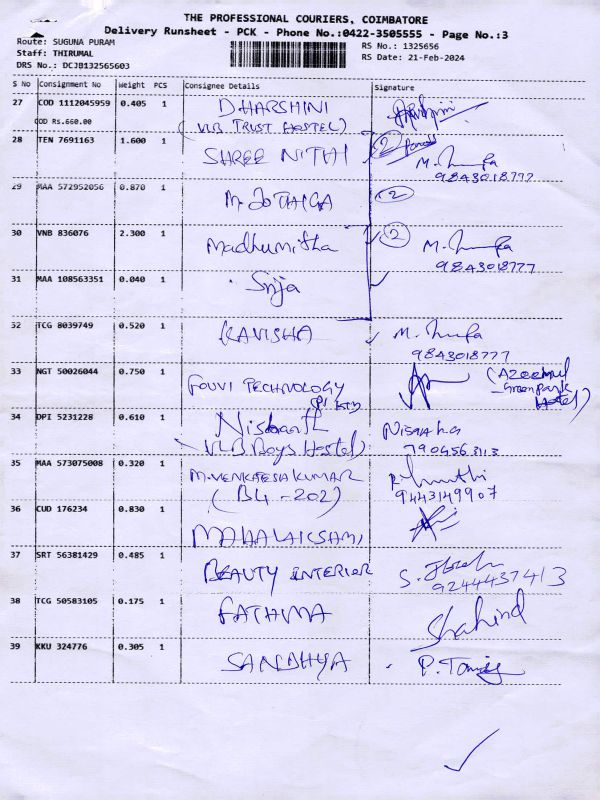 THE PROFESSIONAL COURIERS, COIMBATORE
Delivery Runsheet - PCK - Phone No.:0422-3505555 - Page No.:3
Route: SUGUNA PURAM
RS No.: 1325656
Staff: THIRUMAL
RS Date: 21-Feb-2024
DRS No.: DCJB132565603
S No Consignment No Weight PCS Consignee Details Signature
27 COD 1112045959 0.405 1 DHARSHINI
COD Rs.660.00 (VLB TRUST HOSTEL)
28 TEN 7691163 1.600 1 SHREE NITHI 2
9843018777
29 MAA 572952056 0.870 1 M. JOTHIGA 2
30 VNB 836076 2.300 1 Madhumitha 2
9843018777
31 MAA 108563351 0.040 1 Srija
32 TCG 8039749 0.520 1 KAVISHA
9843018777
33 NGT 50026044 0.750 1 FOUVI TECHNOLOGY
34 DPI 5231228 0.610 1 Nishanth
(VLB Boys Hostel) 7904563113
35 MAA 573075008 0.320 1 M.VENKATESHKUMAR
(B4-202) 9443149907
36 CUD 176234 0.830 1 MAHALAKSHMI
37 SRT 56381429 0.485 1 BEAUTY INTERIOR
9244437413
38 TCG 50583105 0.175 1 FATHIMA Shahind
39 KKU 324776 0.305 1 SANDHYA